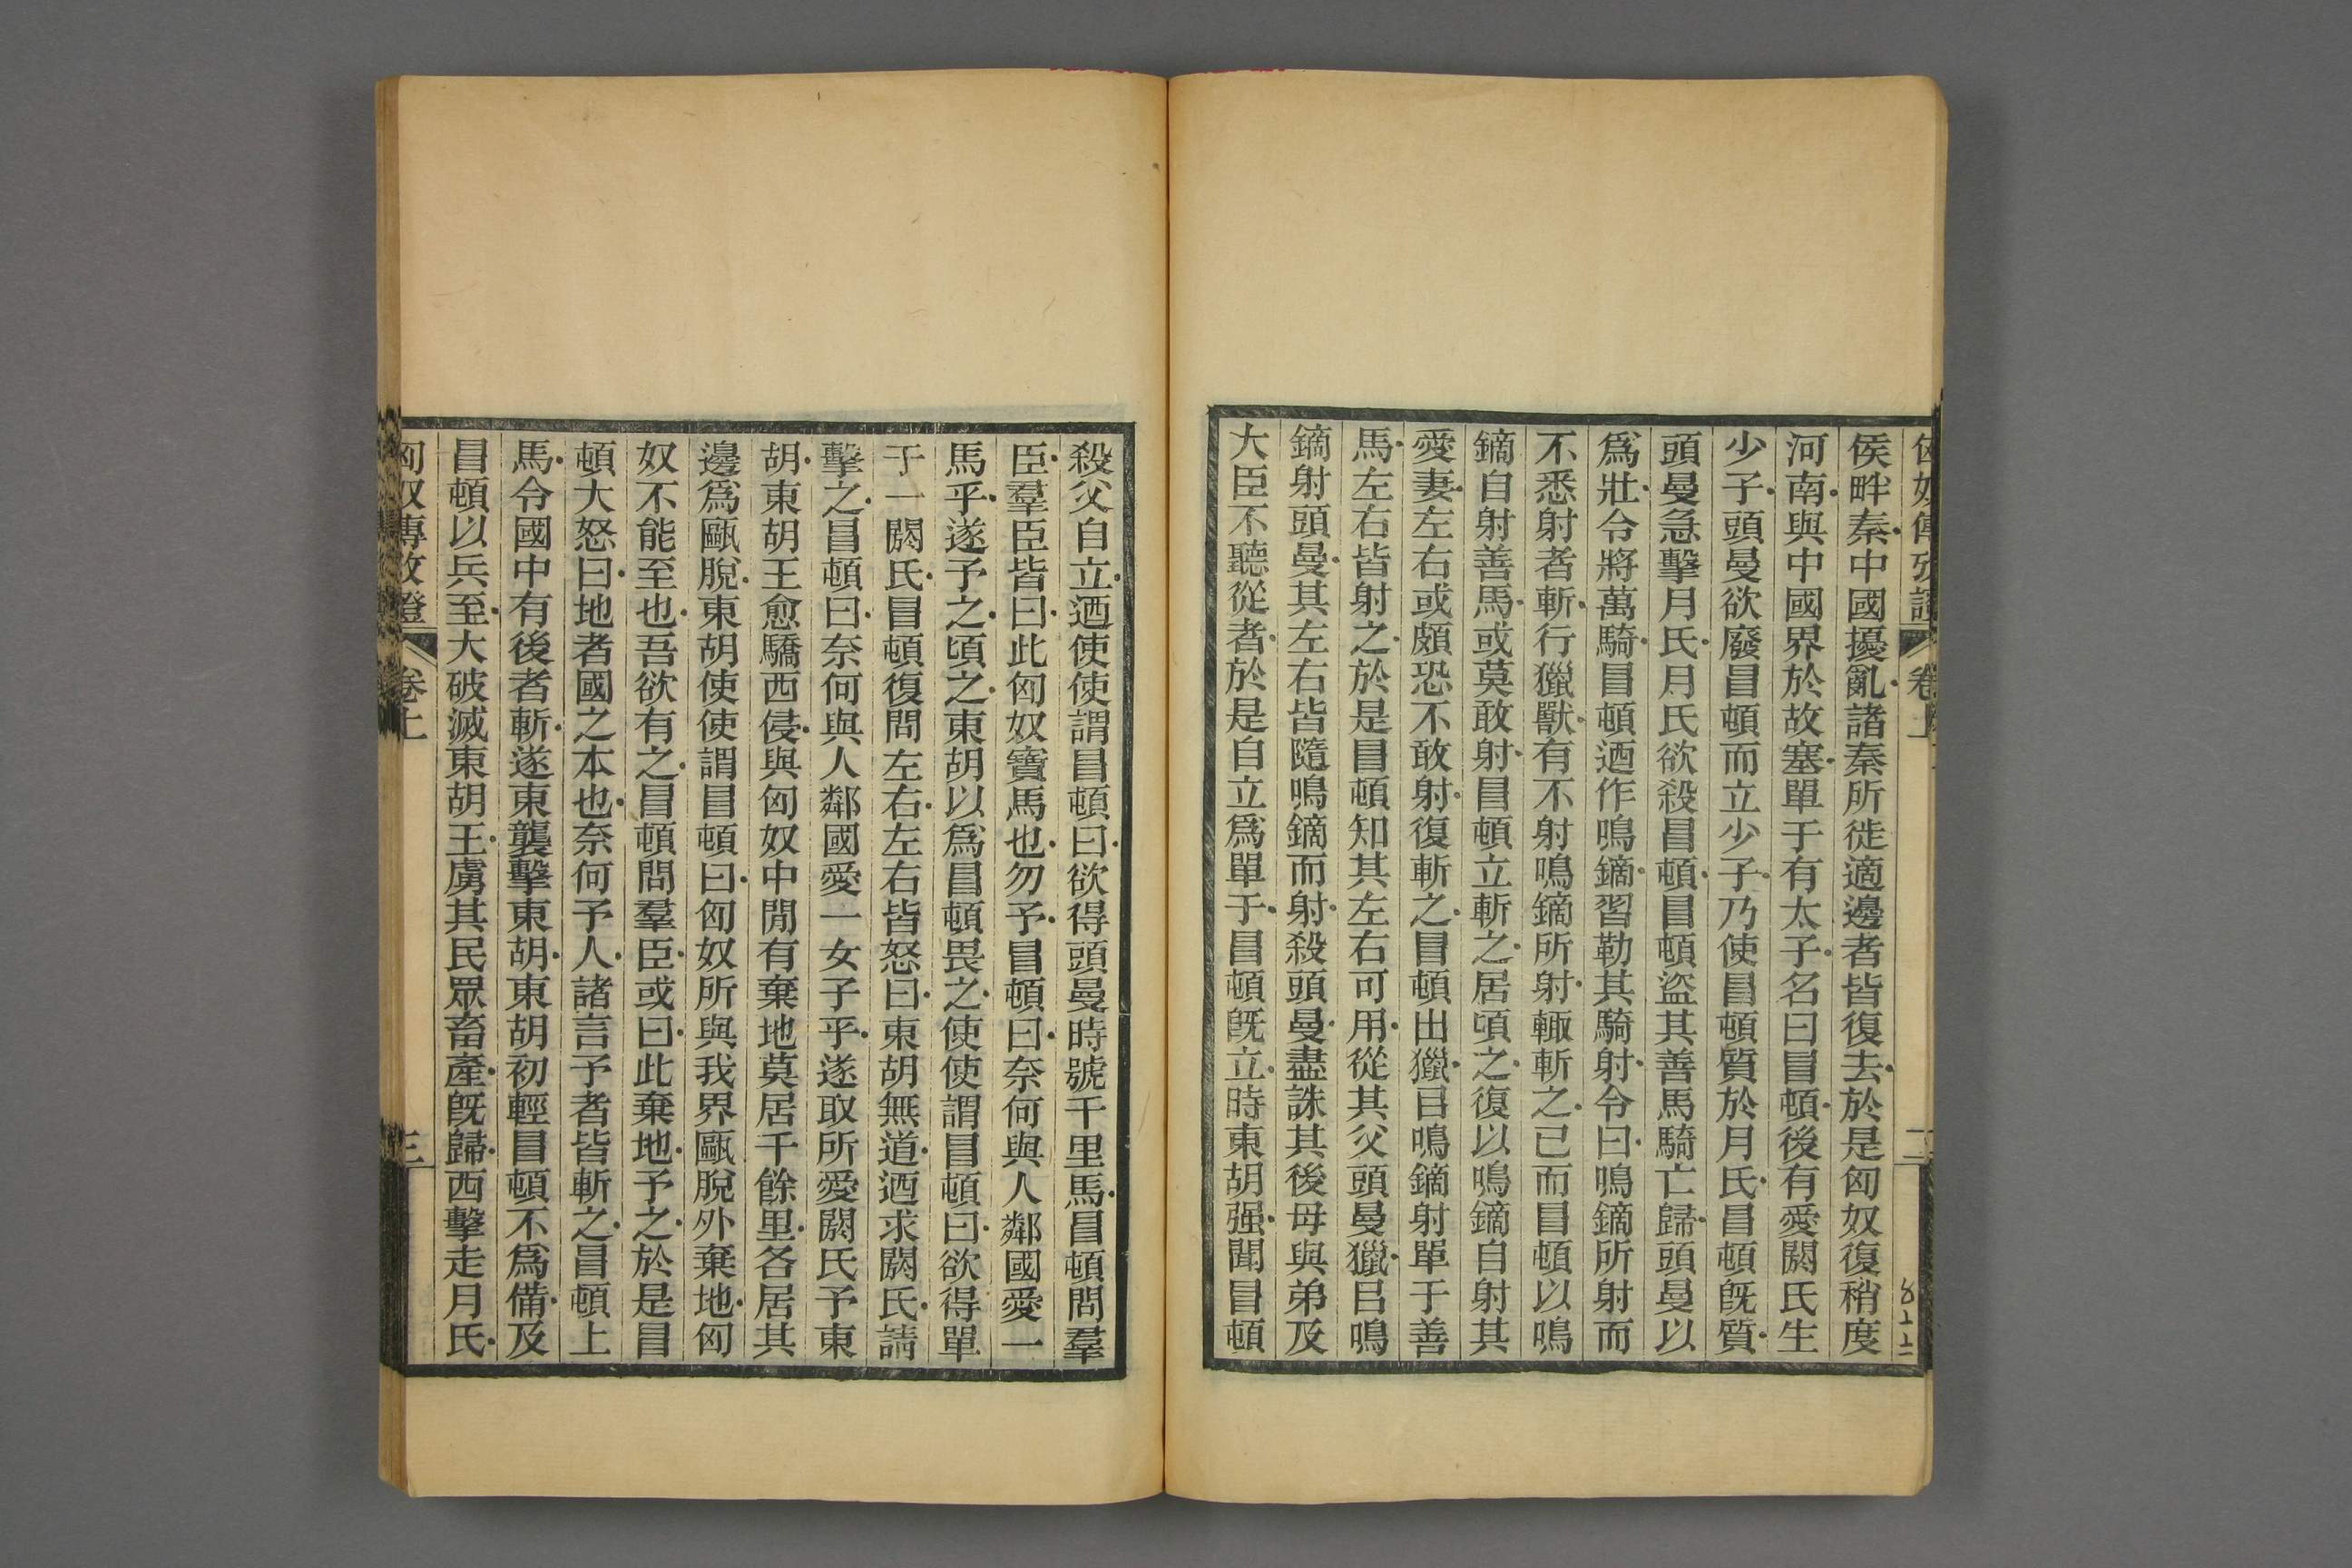 匈奴傳攷證 卷上 二
侯畔秦中國擾亂諸秦所徙適邊者皆復去於是匈奴復稍度
河南與中國界於故塞單于有太子名曰冒頓後有愛閼氏生
少子頭曼欲廢冒頓而立少子乃使冒頓質於月氏冒頓旣質
頭曼急擊月氏月氏欲殺冒頓冒頓盜其善馬騎亡歸頭曼以
爲壯令將萬騎冒頓迺作鳴鏑習勒其騎射令曰鳴鏑所射而
不悉射者斬行獵獸有不射鳴鏑所射輙斬之已而冒頓以鳴
鏑自射善馬或莫敢射冒頓立斬之居頃之復以鳴鏑自射其
愛妻左右或頗恐不敢射復斬之冒頓出獵㠯鳴鏑射單于善
馬左右皆射之於是冒頓知其左右可用從其父頭曼獵㠯鳴
鏑射頭曼其左右皆隨鳴鏑而射殺頭曼盡誅其後母與弟及
大臣不聽從者於是自立爲單于冒頓旣立時東胡强聞冒頓
殺父自立迺使使謂冒頓曰欲得頭曼時號千里馬冒頓問羣
臣羣臣皆曰此匈奴寶馬也勿予冒頓曰奈何與人鄰國愛一
馬乎遂予之頃之東胡以爲冒頓畏之使使謂冒頓曰欲得單
于一閼氏冒頓復問左右左右皆怒曰東胡無道迺求閼氏請
擊之冒頓曰奈何與人鄰國愛一女子乎遂取所愛閼氏予東
胡東胡王愈驕西侵與匈奴中閒有棄地莫居千餘里各居其
邊爲甌脫東胡使使謂冒頓曰匈奴所與我界甌脫外棄地匈
奴不能至也吾欲有之冒頓問羣臣或曰此棄地予之於是冒
頓大怒曰地者國之本也奈何予人諸言予者皆斬之冒頓上
馬令國中有後者斬遂東襲擊東胡東胡初輕冒頓不爲備及
冒頓以兵至大破滅東胡王虜其民眾畜產旣歸西擊走月氏
匈奴傳攷證 卷上 三